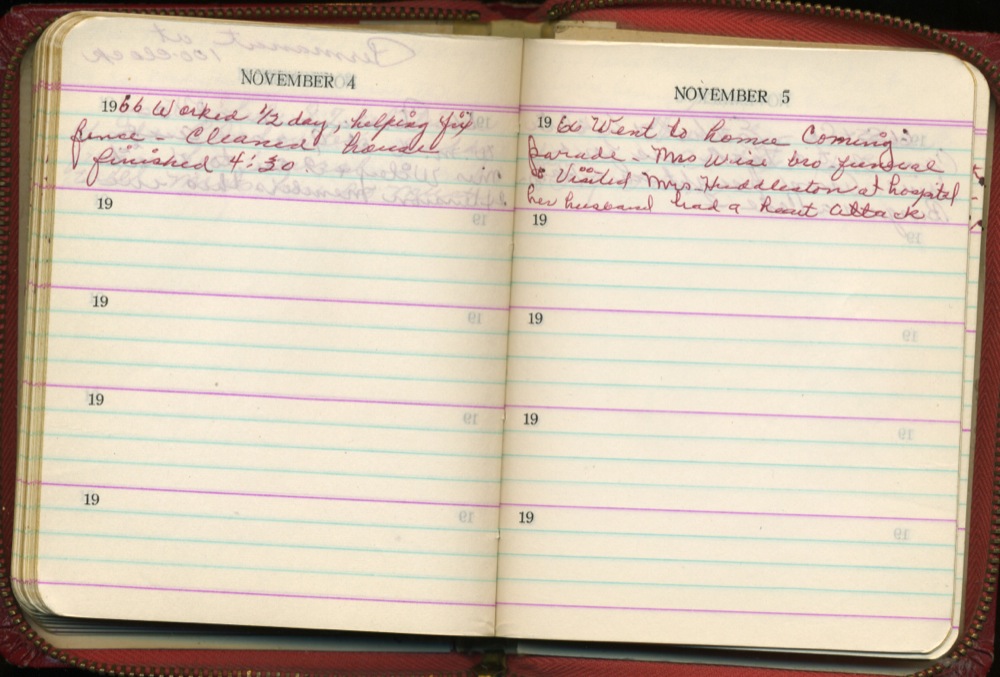 NOVEMBER 4
1966 Worked 1/2 day, helping fix
fence - Cleaned house
finished 4:30.
19
19
19
19
NOVEMBER 5
1966 Went to home Coming
parade - Mrs Wise bro funeral
& Visited Mrs. Huddleston at hospital
her husband had a heart attack
19
19
19
19